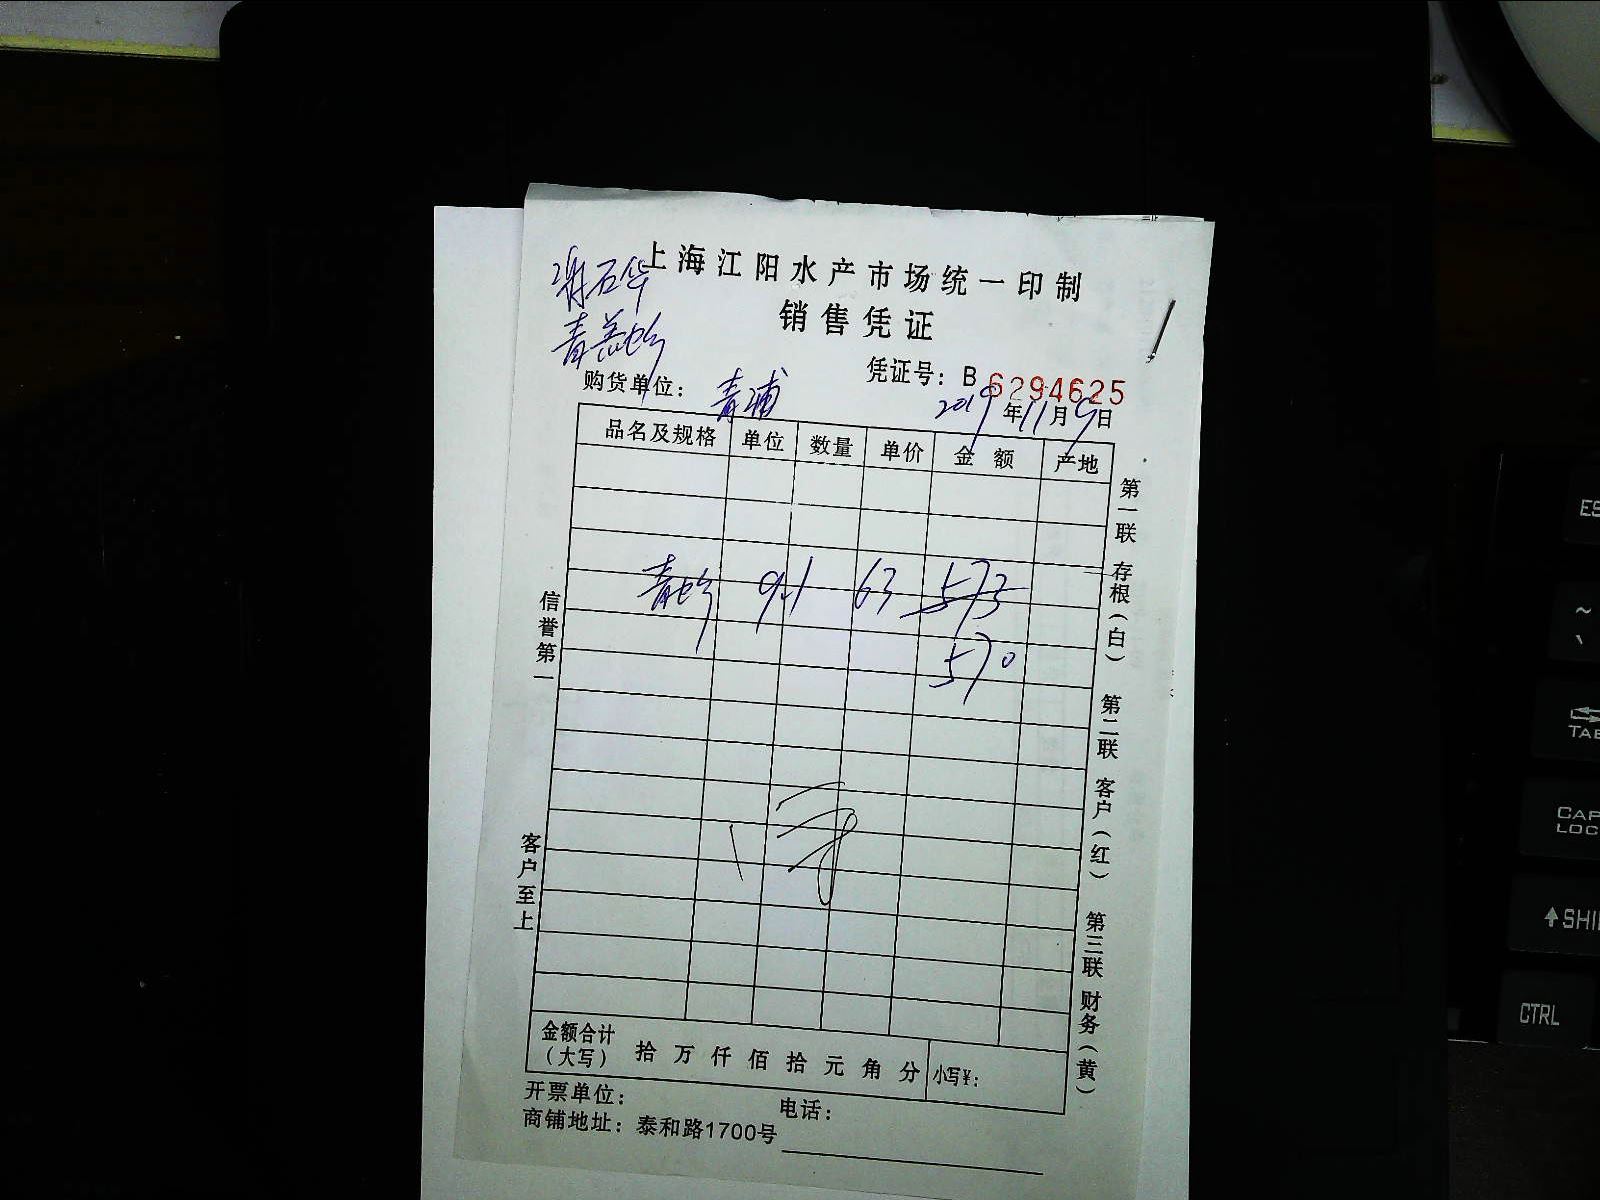 上海江阳水产市场统一印制
销售凭证
谢石华
凭证号：B 6294625
购货单位：青浦
2019年11月9日
品名及规格 单位 数量 单价 金额 产地
9.1 63 573
570
信誉第一
客户至上
第一联 存根（白） 第二联 客户（红） 第三联 财务（黄）
金额合计（大写） 拾万仟佰拾元角分 小写¥：
开票单位： 电话：
商铺地址：泰和路1700号
ES
~
TAB
CAP
LOC
SHI
CTRL